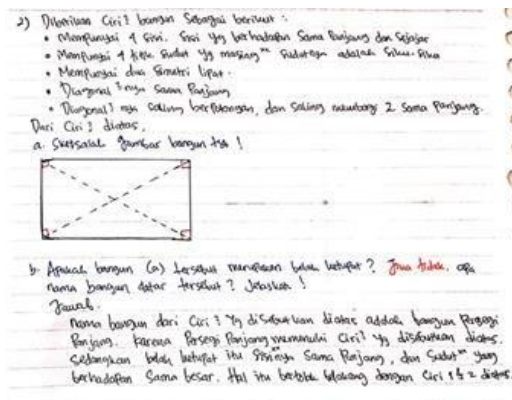 2) Diberikan Ciri² bangun Sebagai berikut :
• Mempunyai 4 Sisi. Sisi Yg berhadapan Sama Panjang dan Sejajar
• Mempunyai 4 titik Sudut Yg masing" Sudutnya adalah Siku-Siku
• Mempunyai dua Simetri lipat.
• Diagonal²nya Sama Panjang
• Diagonal²nya Saling berpotongan, dan Saling membagi 2 Sama Panjang.
Dari Ciri² diatas,
a. Sketsalah gambar bangun tsb !
b. Apakah bangun (a) tersebut merupakan belah ketupat ? Jika tidak, apa
nama bangun datar tersebut ? Jelaskan !
Jawab.
nama bangun dari Ciri² Yg disebutkan diatas adalah bangun Persegi
Panjang. Karena Persegi Panjang memenuhi Ciri² yg disebutkan diatas.
Sedangkan belah ketupat itu Sisinya Sama Panjang, dan Sudut" yang
berhadapan Sama besar. Hal itu bertolak belakang dengan Ciri 1 & 2 diatas.